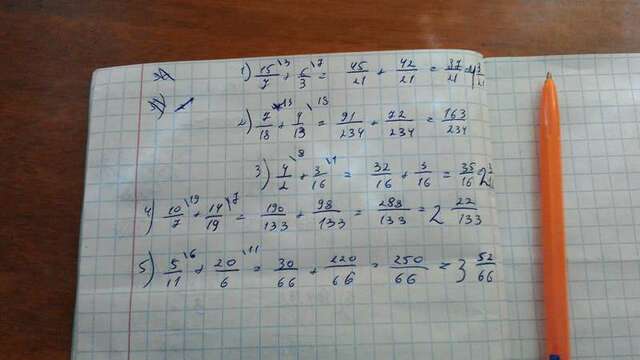 1) 15/7 \3 + 6/3 \7 = 45/21 + 42/21 = 87/21
2) 7/18 \13 + 4/13 \18 = 91/234 + 72/234 = 163/234
3) 4/2 \8 + 3/16 \1 = 32/16 + 3/16 = 35/16
4) 10/7 \19 + 14/19 \7 = 190/133 + 98/133 = 288/133 = 2 22/133
5) 5/11 \6 + 20/6 \11 = 30/66 + 220/66 = 250/66 = 3 52/66